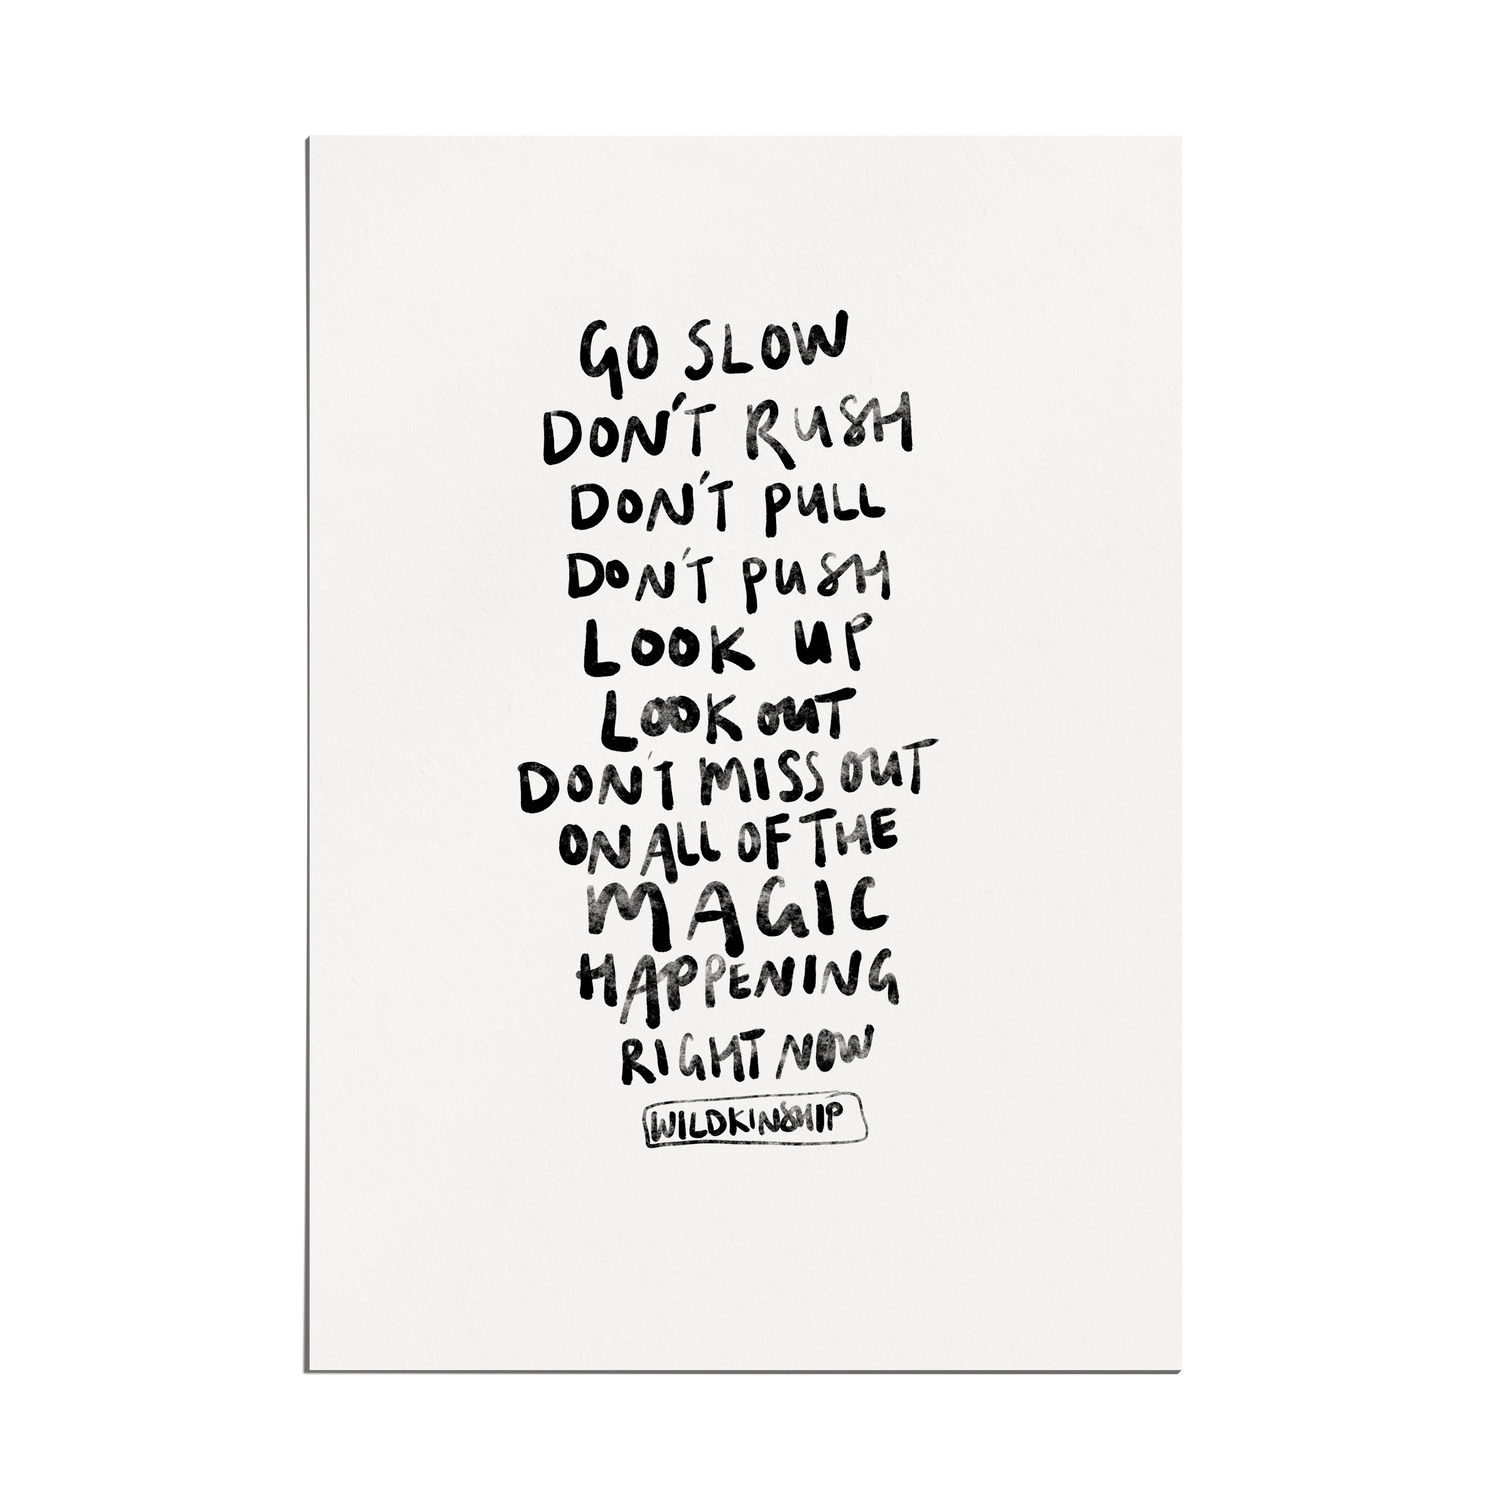 GO SLOW
DON'T RUSH
DON'T PULL
DON'T PUSH
LOOK UP
LOOK OUT
DON'T MISS OUT
ON ALL OF THE
MAGIC
HAPPENING
RIGHT NOW
WILDKINSHIP